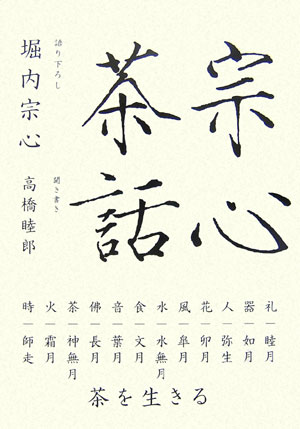 宗心
茶話
語り下ろし
堀内宗心
聞き書き
高橋睦郎
礼―睦月
器―如月
人―弥生
花―卯月
風―皐月
水―水無月
食―文月
音―葉月
佛―長月
茶―神無月
火―霜月
時―師走
茶を生きる